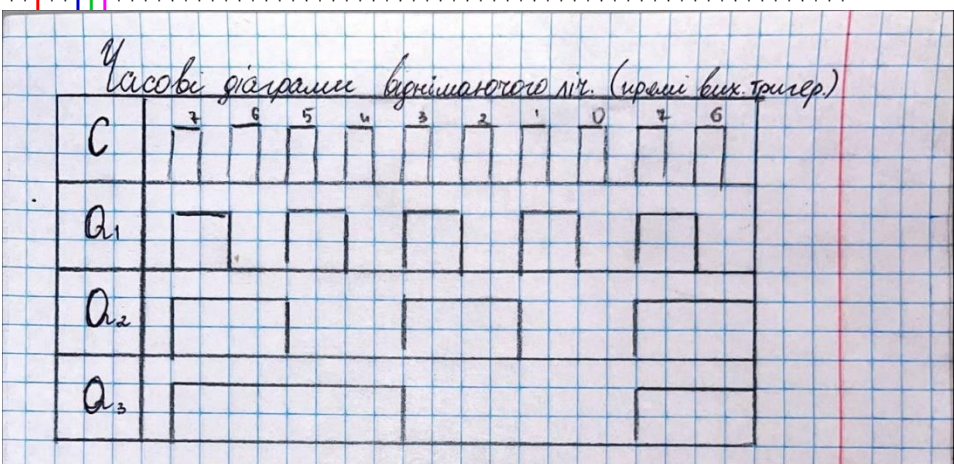 Часові діаграми віднімаючого ліч. (прямі вих. тригер.)
C 7 6 5 4 3 2 1 0 7 6
Q1
Q2
Q3